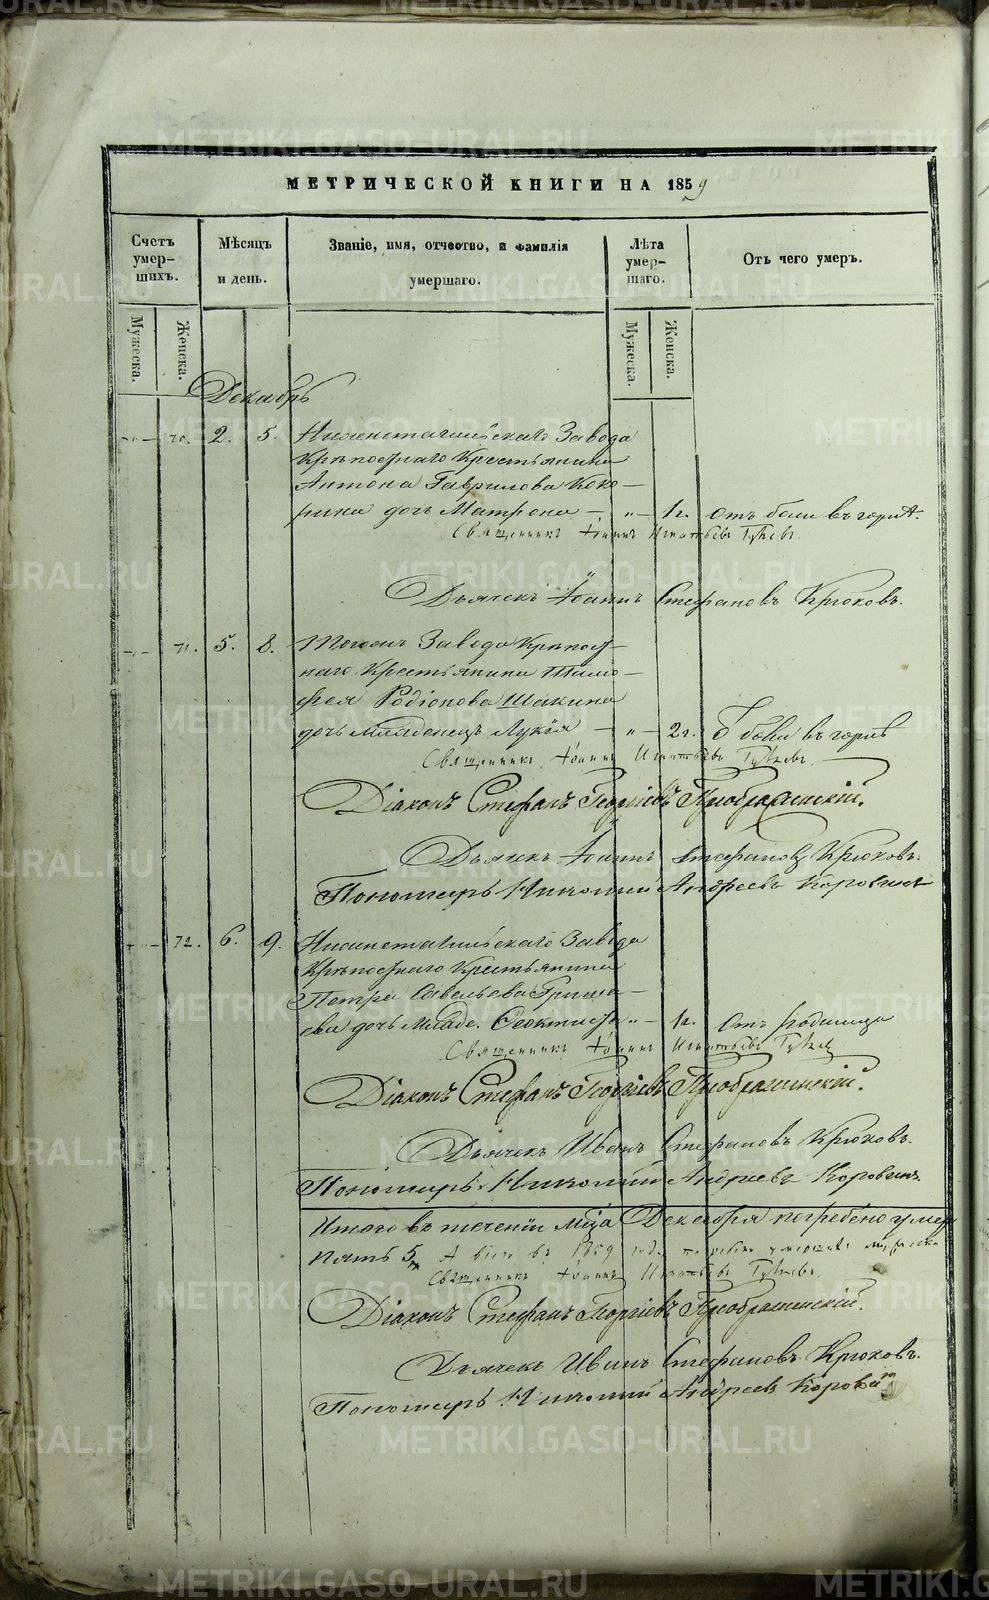 МЕТРИЧЕСКОЙ КНИГИ НА 1859
Счетъ умер-шихъ.
Мѣсяцъ и день.
Званіе, имя, отчество, и фамилія умершаго.
Лѣта умер-шаго.
Отъ чего умеръ.
Мужеска.
Женска.
Мужеска.
Женска.
Декабрь
70. 2. 5. Нижнетагильскаго Завода
Крѣпостнаго Крестьянина
Антона Гаврилова Коко-
рина дочь Матрона — „ — 1 г. Отъ боли въ горлѣ.
Священникъ Іоаннъ Игнатьевъ
Дьячекъ Іоаннъ Стефановъ Крюковъ.
71. 5. 8. Тогожъ Завода Крѣпост-
наго Крестьянина Тимо-
фея Родіонова Шакина
дочь младенецъ Лукія — „ — 2 г. боли въ горлѣ
Священникъ Іоаннъ Игнатьевъ
Діаконъ Стефанъ Георгіевъ Преображенскій.
Дьячекъ Іоаннъ Стефановъ Крюковъ.
Пономарь Николай Андреевъ Коровинъ
72. 6. 9. Нижнетагильскаго Завода
Крѣпостнаго Крестьянина
Петра Савельева
дочь Младе. Феоктиста „ — 1 г. Отъ родимца
Священникъ Іоаннъ Игнатьевъ
Діаконъ Стефанъ Георгіевъ Преображенскій.
Дьячекъ Иванъ Стефановъ Крюковъ.
Пономарь Николай Андреевъ Коровинъ.
Итого въ теченіи мѣсяца Декабря погребено умер
пять 5 А всего въ 1859 году умершихъ мужеска
Священникъ Іоаннъ Игнатьевъ
Діаконъ Стефанъ Георгіевъ Преображенскій.
Дьячекъ Иванъ Стефановъ Крюковъ.
Пономарь Николай Андреевъ Коровинъ
METRIKI.GASO-URAL.RU